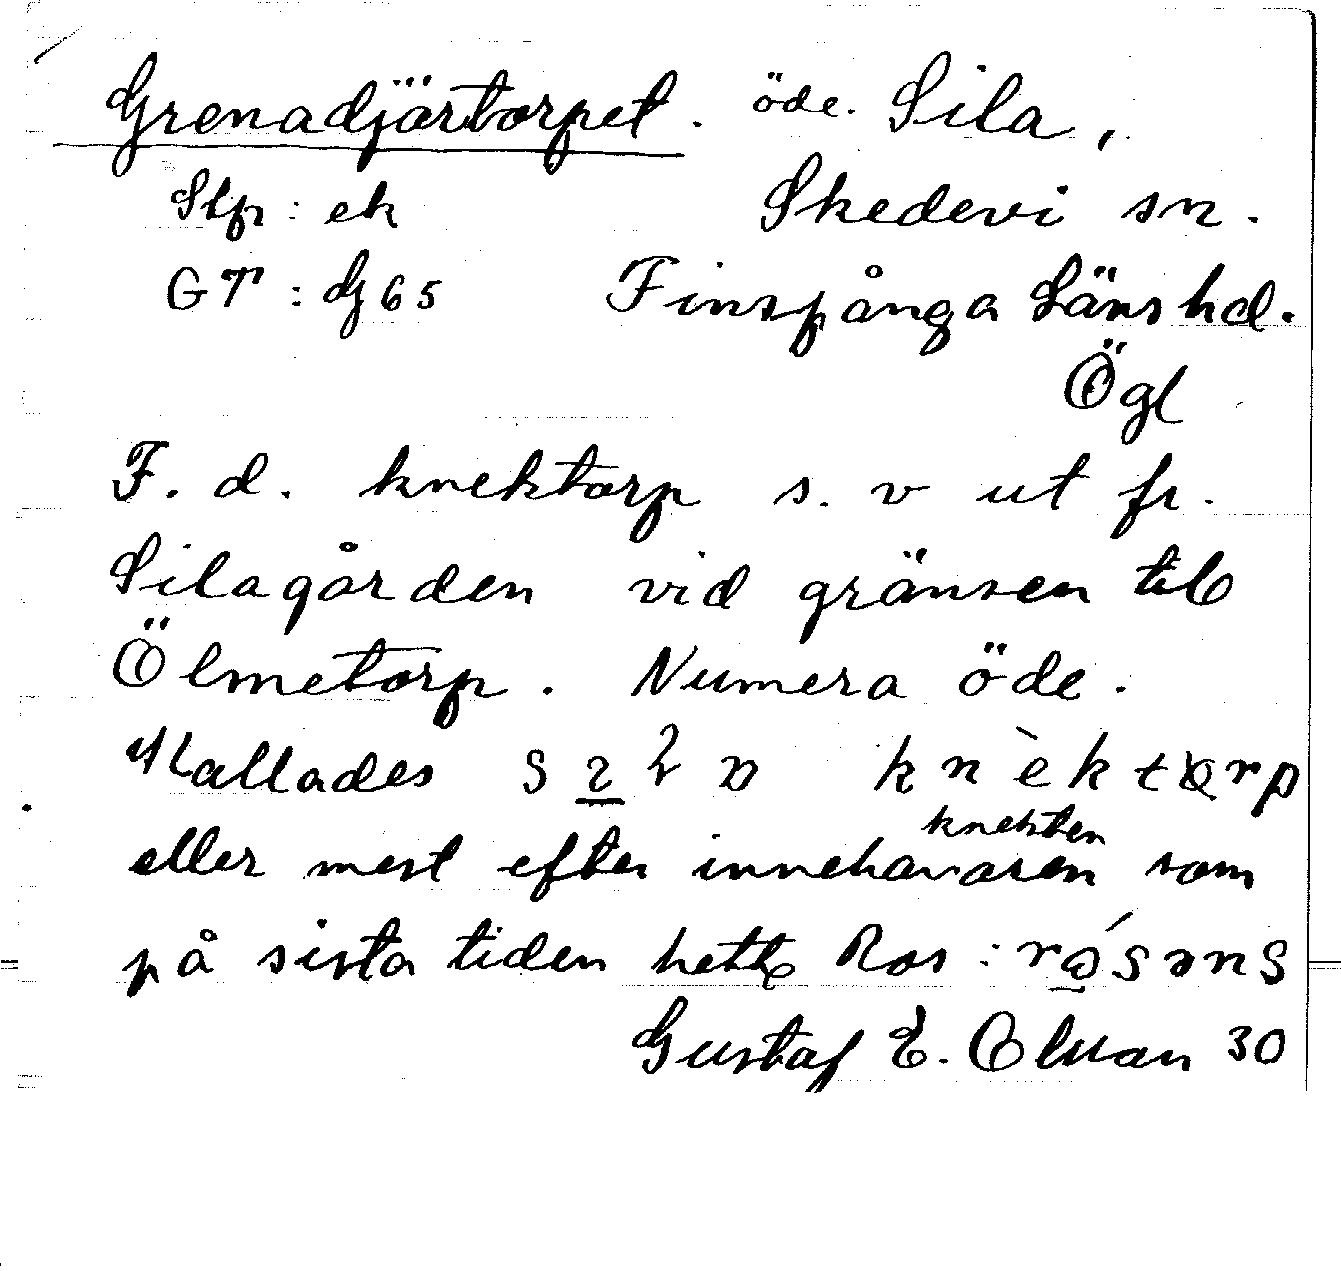 Grenadjärtorpet. öde. Sila,
Stfr: ek Skedevi sn.
GT: dj 65 Finspånga Läns hd.
Ögl
F. d. knektorp s. v ut fr.
Silagården vid gränsen till
Ölmetorp. Numera öde.
Kallades knèktorp
knekten
eller mest efter innehavaren som
på sista tiden hette Ros:
Gustaf E. 30